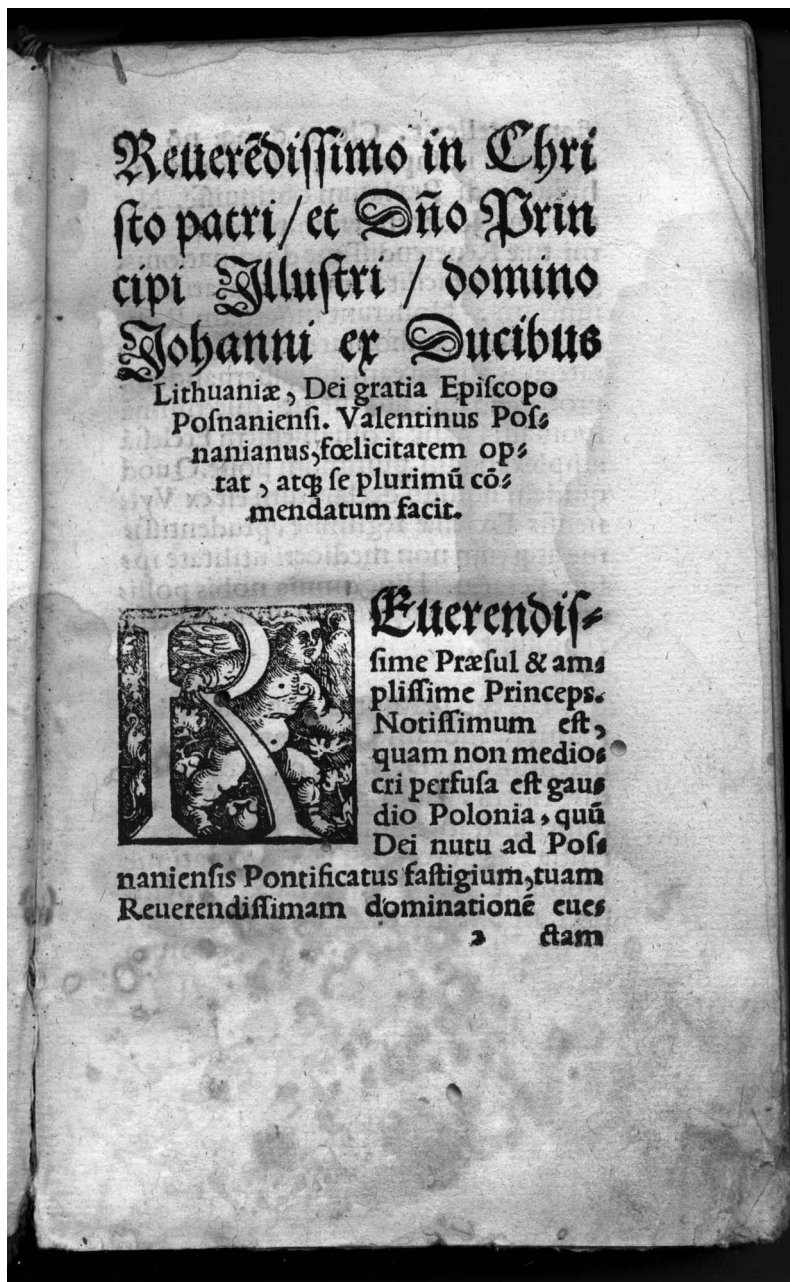 Reuerẽdiſſimo in Chri
ſto patri/et Dño Prin
cipi Illuſtri / domino
Johanni ex Ducibus
Lithuaniæ, Dei gratia Epiſcopo
Poſnanienſi. Valentinus Poſ⸗
nanianus, fœlicitatem op⸗
tat, atqꝫ ſe plurimũ cõ⸗
mendatum facit.
REuerendiſ⸗
ſime Præſul & am⸗
pliſſime Princeps.
Notiſſimum eſt,
quam non medio⸗
cri perfuſa eſt gau⸗
dio Polonia, quũ
Dei nutu ad Poſ⸗
nanienſis Pontificatus faſtigium, tuam
Reuerendiſſimam dominationẽ eue⸗
2 ctam